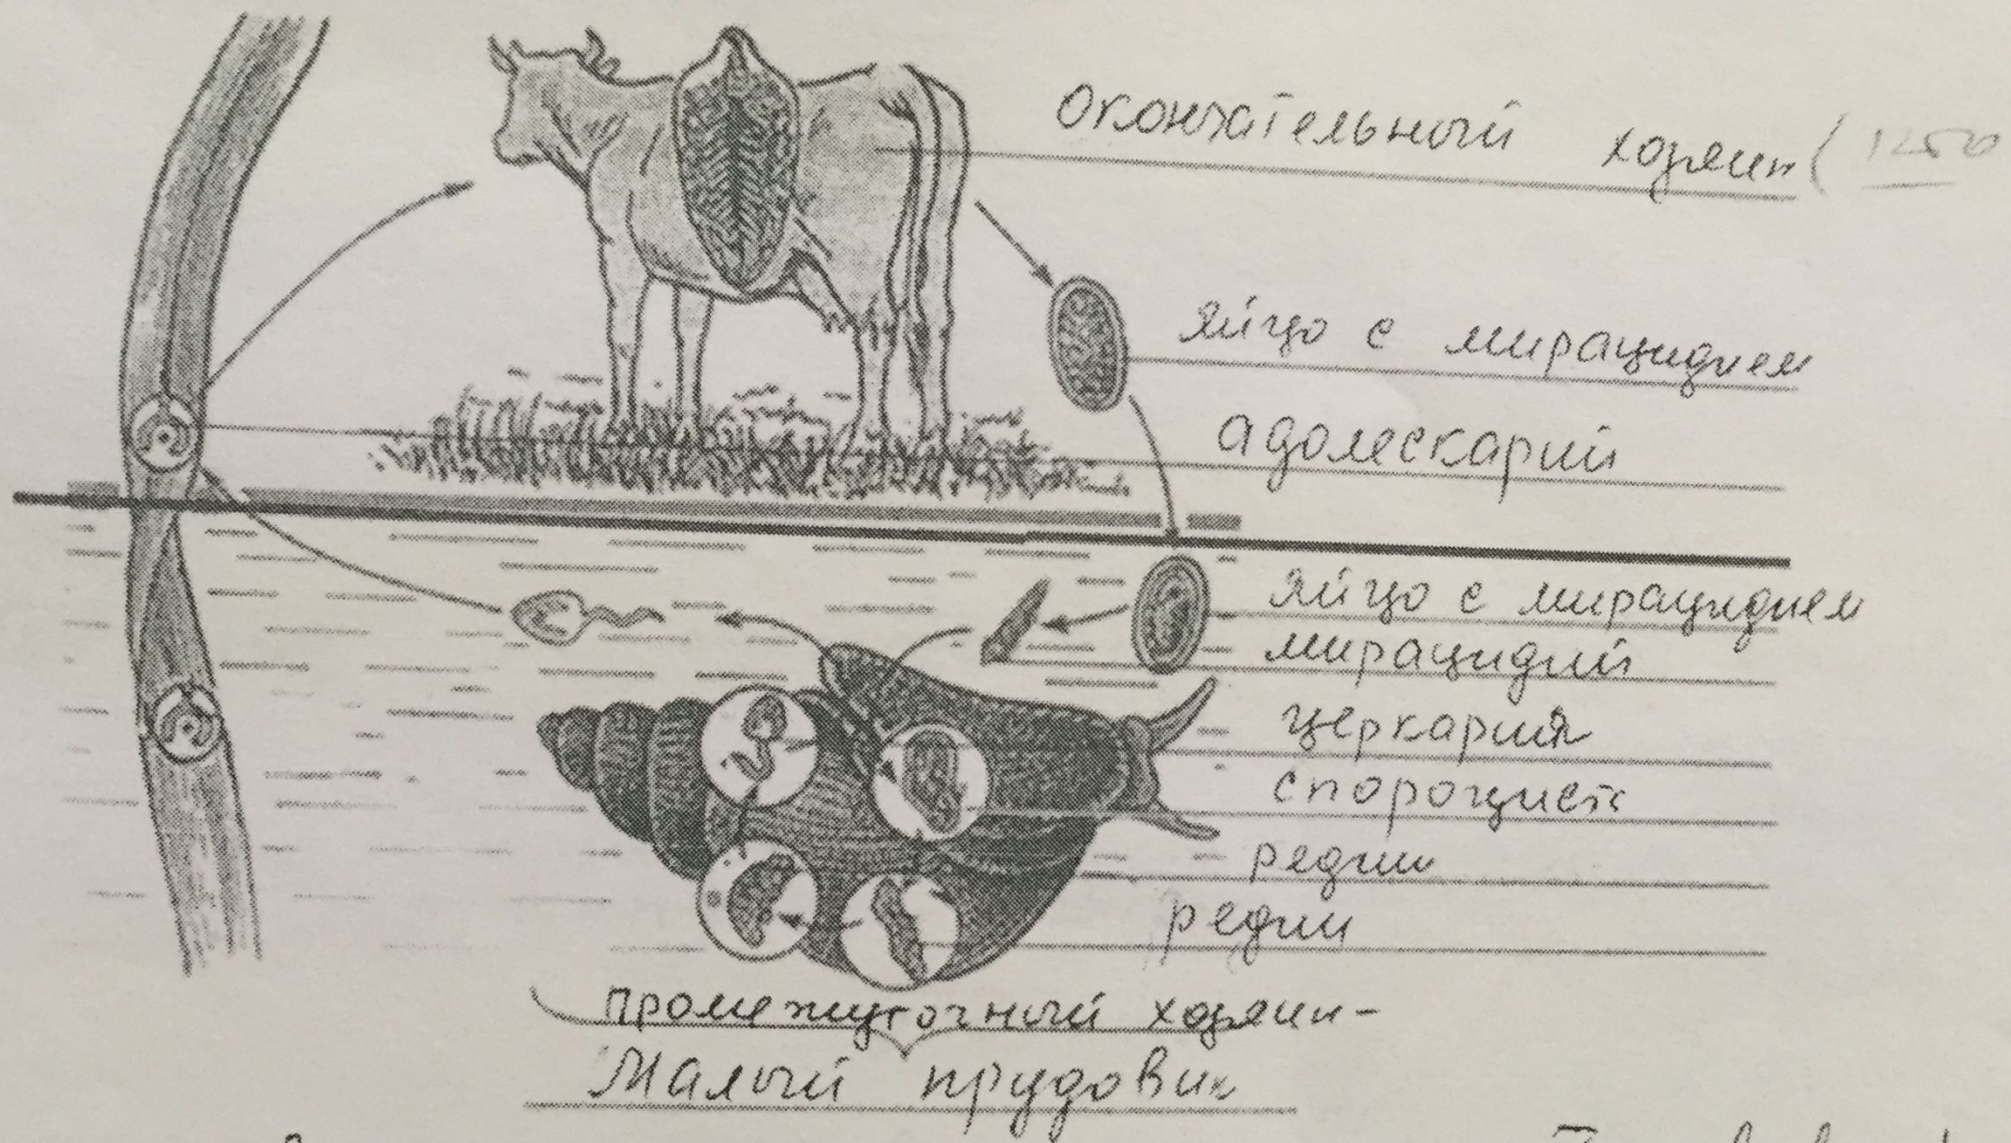 окончательный хозяин (
яйцо с мирацидием
адолескарий
яйцо с мирацидием
мирацидий
церкария
спороциста
редии
редии
промежуточный хозяин-
малый прудовик